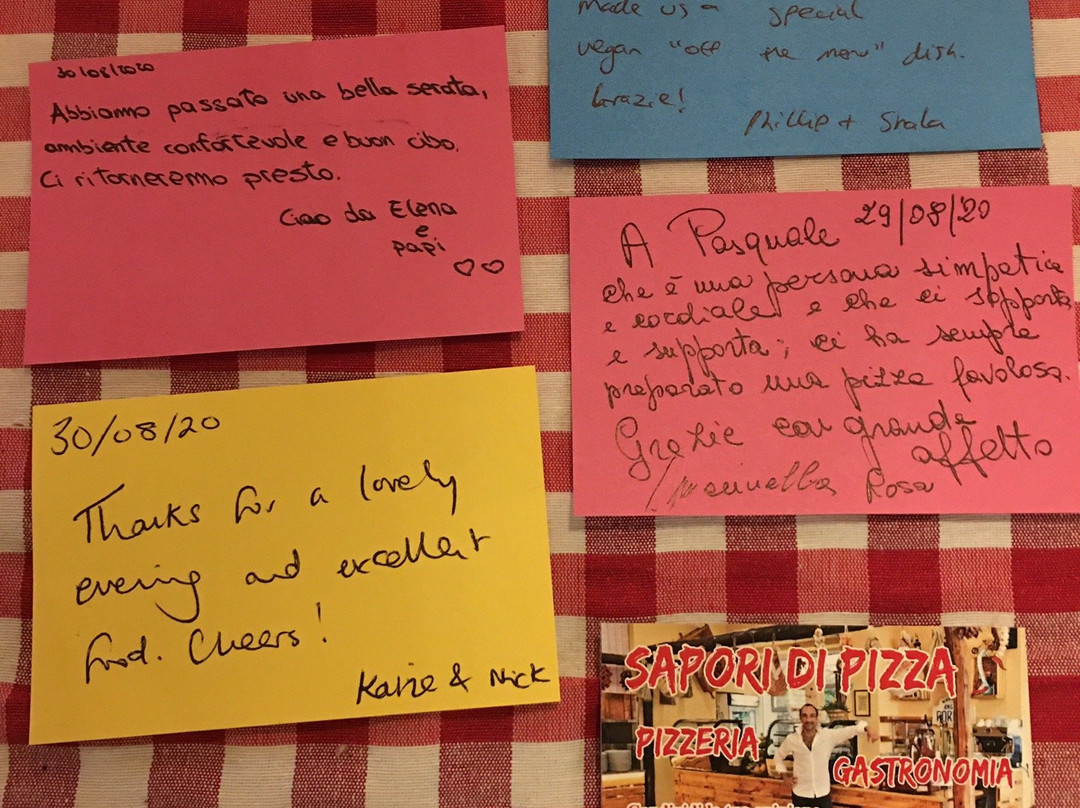 30/08/2020
Abbiamo passato una bella serata,
ambiente confortevole e buon cibo.
Ci ritorneremo presto.
Ciao da Elena
e
papi
made us a special
vegan "off the menu" dish.
Grazie!
Phillip + Shala
A Pasquale 29/08/20
che è una persona simpatica
e cordiale e che ci sopporta
e supporta; ci ha sempre
preparato una pizza favolosa.
Grazie con grande
affetto
Rosa
30/08/20
Thanks for a lovely
evening and excellent
food. Cheers!
Katie & Nick
SAPORI DI PIZZA
PIZZERIA
GASTRONOMIA